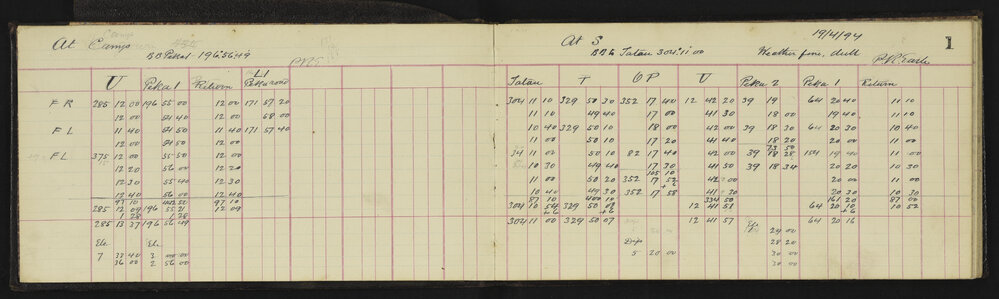 At Camp
BB Peka 1 196°56'49
At S
19/4/94
1
BB to Tatau 304°11'00
Weather fine, dull
U Peka 1 Return L1 Peka road
Tatau T OP U Peka 2 Peka 1 Return
FR 285 12 00 196 55 00 12 00 171 57 20
304 11 10 329 50 30 352 17 40 12 42 20 39 19 64 20 40 11 10
12 00 54 40 12 00 58 00
11 10 49 40 17 00 41 30 18 00 19 40 11 10
FL 11 40 54 50 11 40 171 57 40
10 40 329 50 10 18 00 42 00 39 18 30 64 20 30 10 40
12 00 54 50 12 00
11 00 50 10 17 20 41 40 18 20 20 00 11 00
FL 375 12 00 55 50 12 00
34 11 00 50 10 82 17 40 42 00 39 18 28 154 19 40 11 00
12 20 56 00 12 20
10 30 49 40 17 30 41 50 39 18 34 20 20 10 30
12 30 55 40 12 30
11 00 50 20 352 17 52 42 00 20 00 11 00
12 40 56 00 12 40
10 40 49 30 352 17 58 41 30 20 30 10 30
97 10 97 10
87 10 400 10 334 50 161 20 87 00
285 12 09 196 55 21 12 09
304 10 54 329 50 01 12 41 51 64 20 10 10 52
1 28 1 28
+6 +6 +6
285 13 37 196 56 49
304 11 00 329 50 07 12 41 57 64 20 16
Ele Ele
29 00
28 20
7 33 40 3 00 00
5 20 00 30 00
36 00 2 56 00
30 00